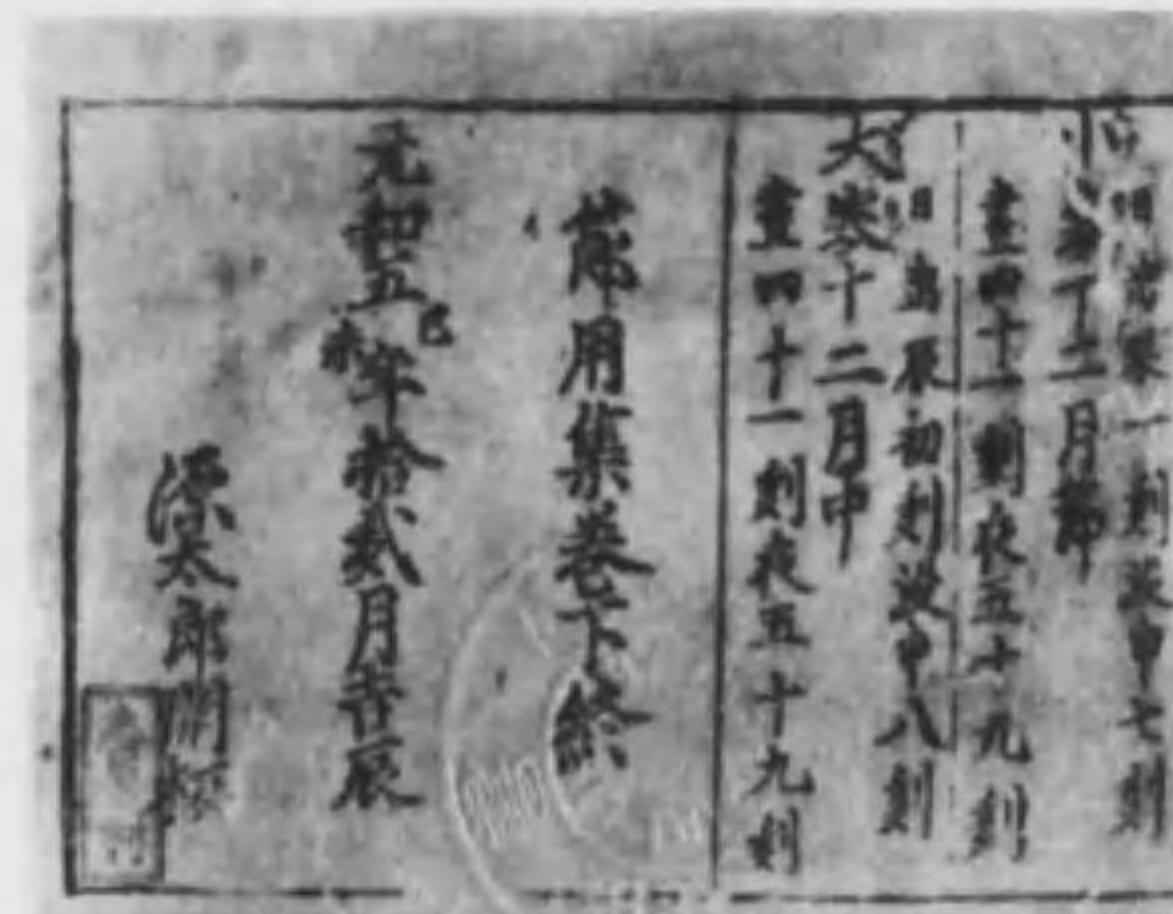 小寒十二月節
晝四十一刻夜五十九刻
日出辰初刻没申八刻
大寒十二月中
晝四十一刻夜五十九刻
節用集巻下終
元和五己未年拾弐月吉辰
源太郎開板